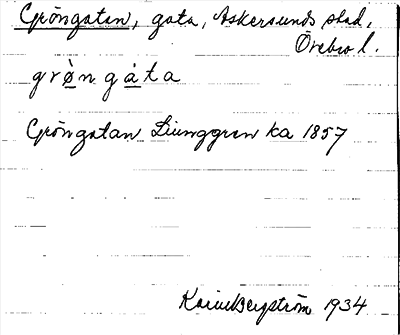 Gröngatan, gata, Askersunds stad,
Örebro l.
grø̀n gàta
Gröngatan Ljunggren ka 1857
Karin Bergström 1934